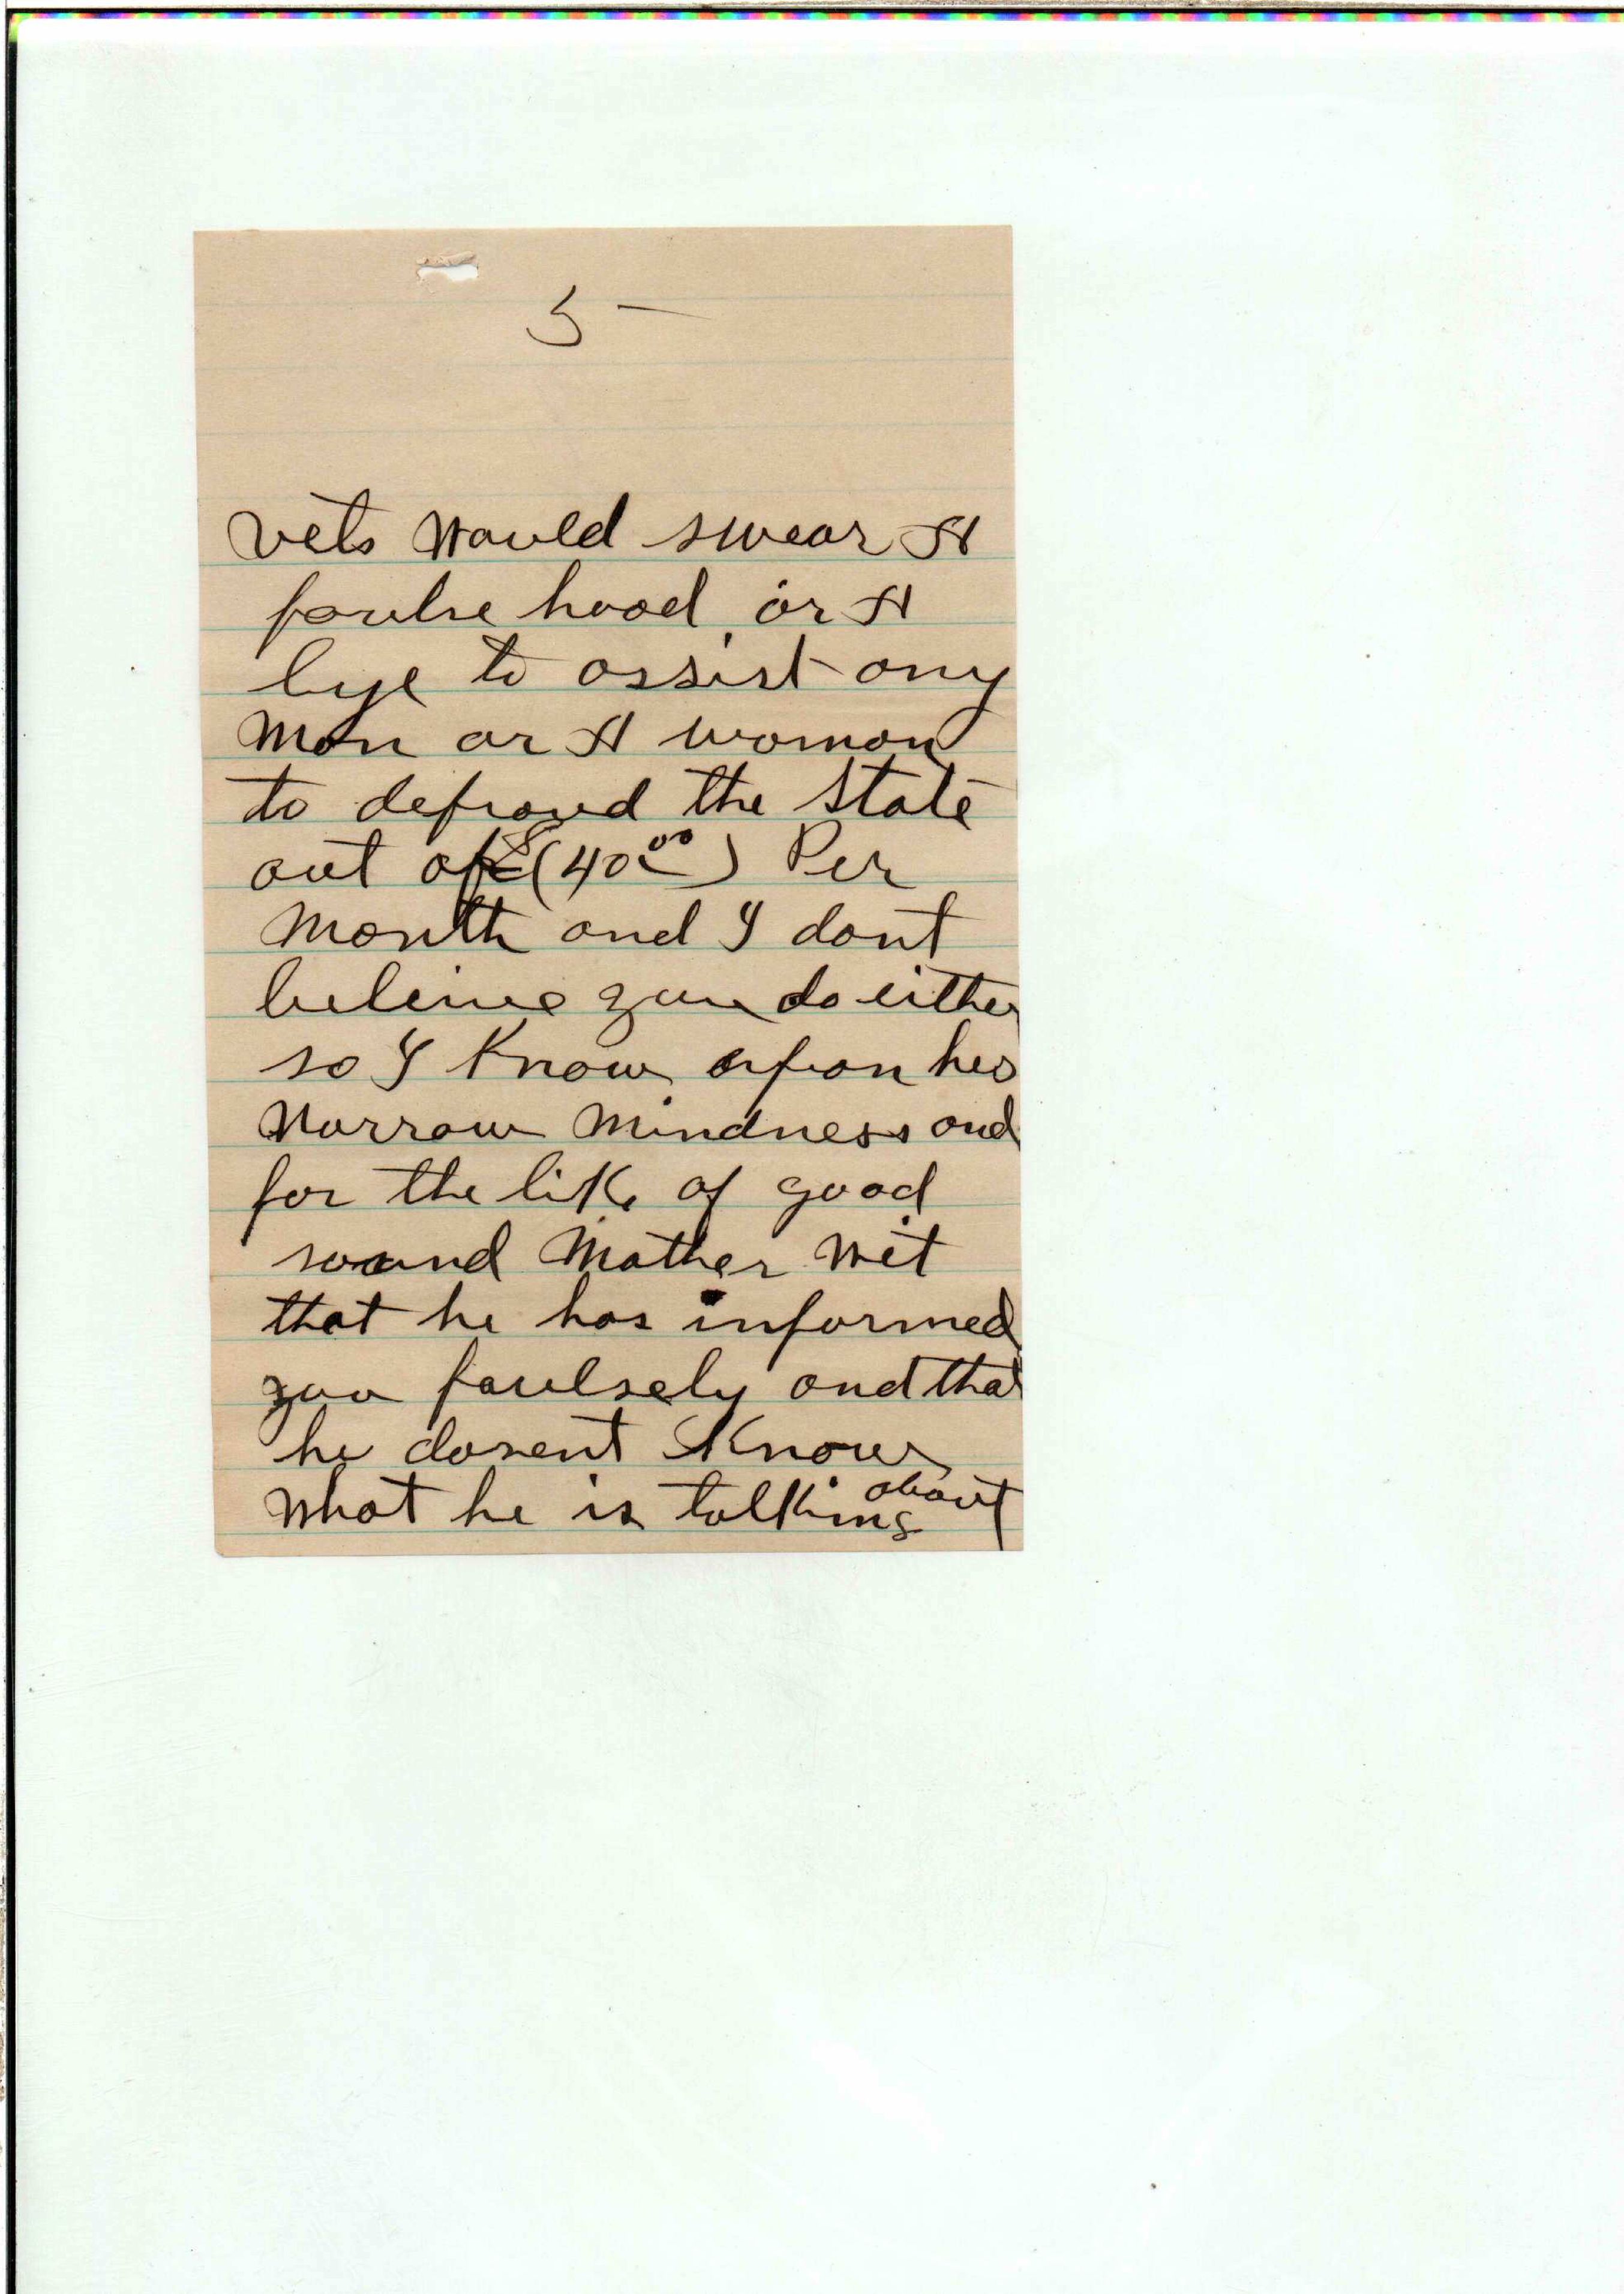 5 —
vets Would swear A
faulse hood or A
lye to assist any
Man or A woman
to defraud the State
out of $(40 00) Per
Month and I dont
beleive you do either
so I Know upon his
Narrow Mindness and
for the like of good
sound Mother Wit
that he has informed
you faulsely and that
he dosent Know
What he is talking about